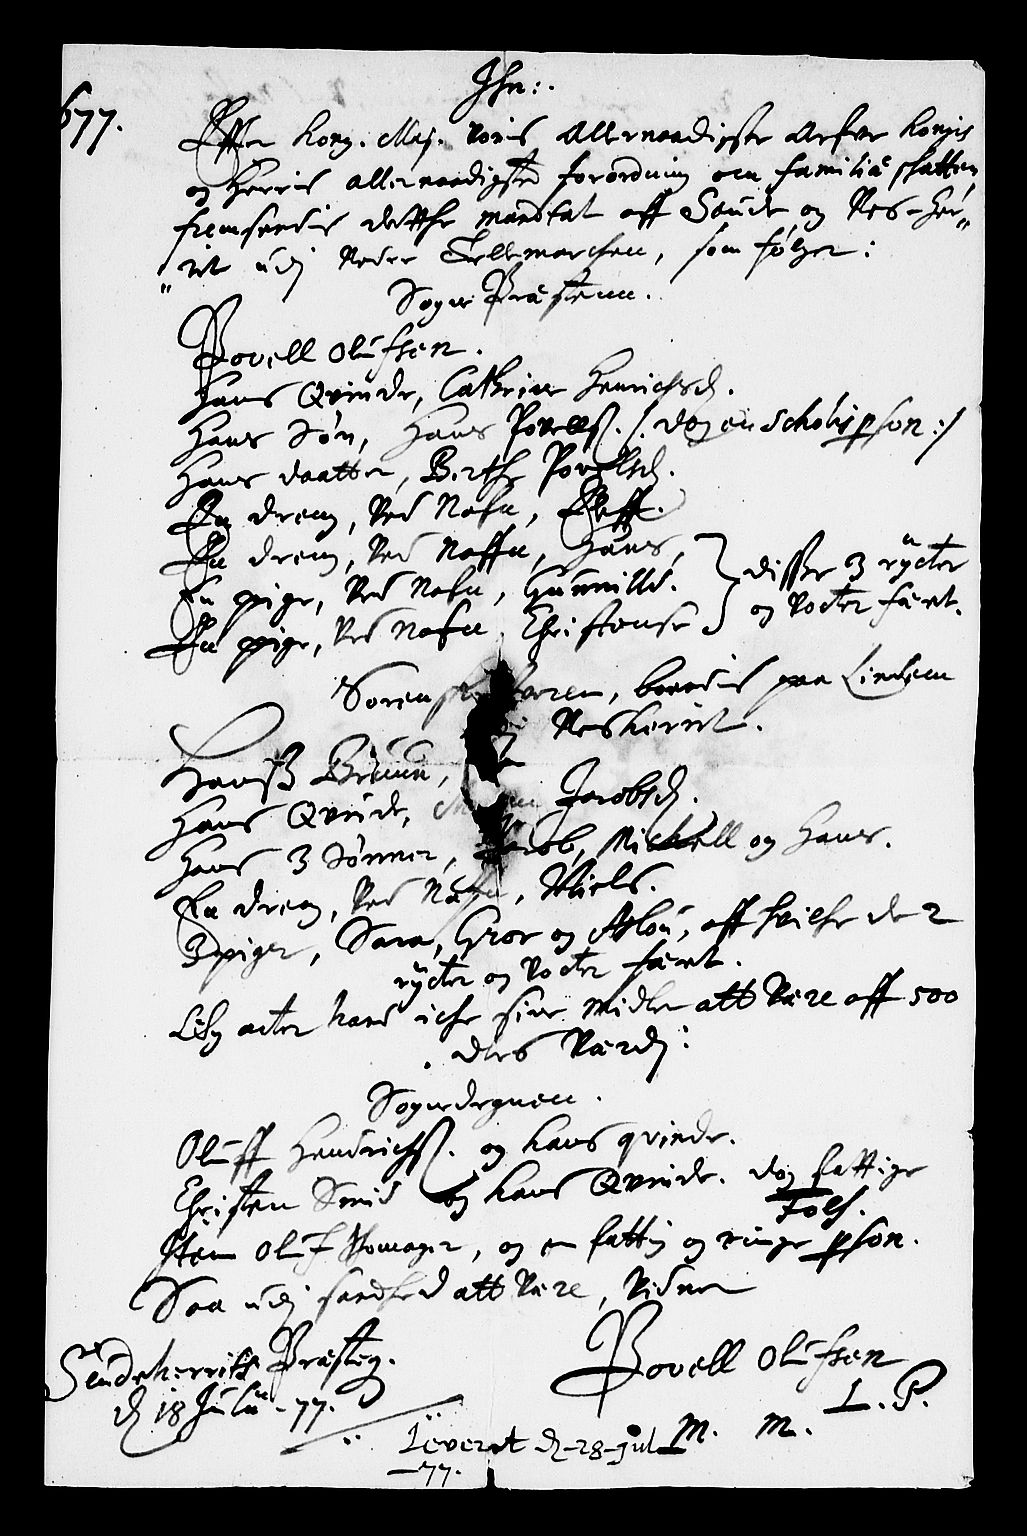 Jhn:.
677.
Effter Kong. Maj. voris allernaadigste Arfve Konges
og Herris allernaadigste forordning om familiæ skatten
fremsendis dette mandtal aff Saude og Nes-Her„
„rit udj Nedre Tellemarchen, som følger:
Sogne Præstenn.
Povell Olufsen.
Hans Qvinde, Cathrine Henrichsd.
Hans Søn, Hans Povells. /: dog en Scholis pson :/
Hans daatter, Birthe Povelsd.
En dreng, ved Nafn, Eleff.
En dreng, ved Naffn, Hans,
En pige, ved Nafn, Gunnilld.
En pige, ved Nafn, Christense
disse 3 rÿcter
og vocter færet.
Sorenskrifveren, boendis paa Lindem
Nesherrit.
Hanß Bruun,
Hans Qvinde, Jacobsd.
Hans 3 Sønner, Jacob, Michell og Hans.
En dreng, ved Nafn, Niels.
3 piger, Sara, Groe og Aslou, aff hvilche de 2
rÿcter og vocter færet.
Ellers acter hand iche sine midler att være aff 500
dlrs værdj:
Sognedegnen.
Oluff Hendrichs. og hans qvinde.
Christen Smid og hans Qvinde. dog fattige
Folch.
Item Oluf Skomager, og en fattig og ringe pson.
Saa udj sandhed att være, vidner
Povell Olufsen
Saudeherrits Præsteg.
d 18 Julii -77.
L. P.
M. M.
Leveret d-28-Jul
-77.